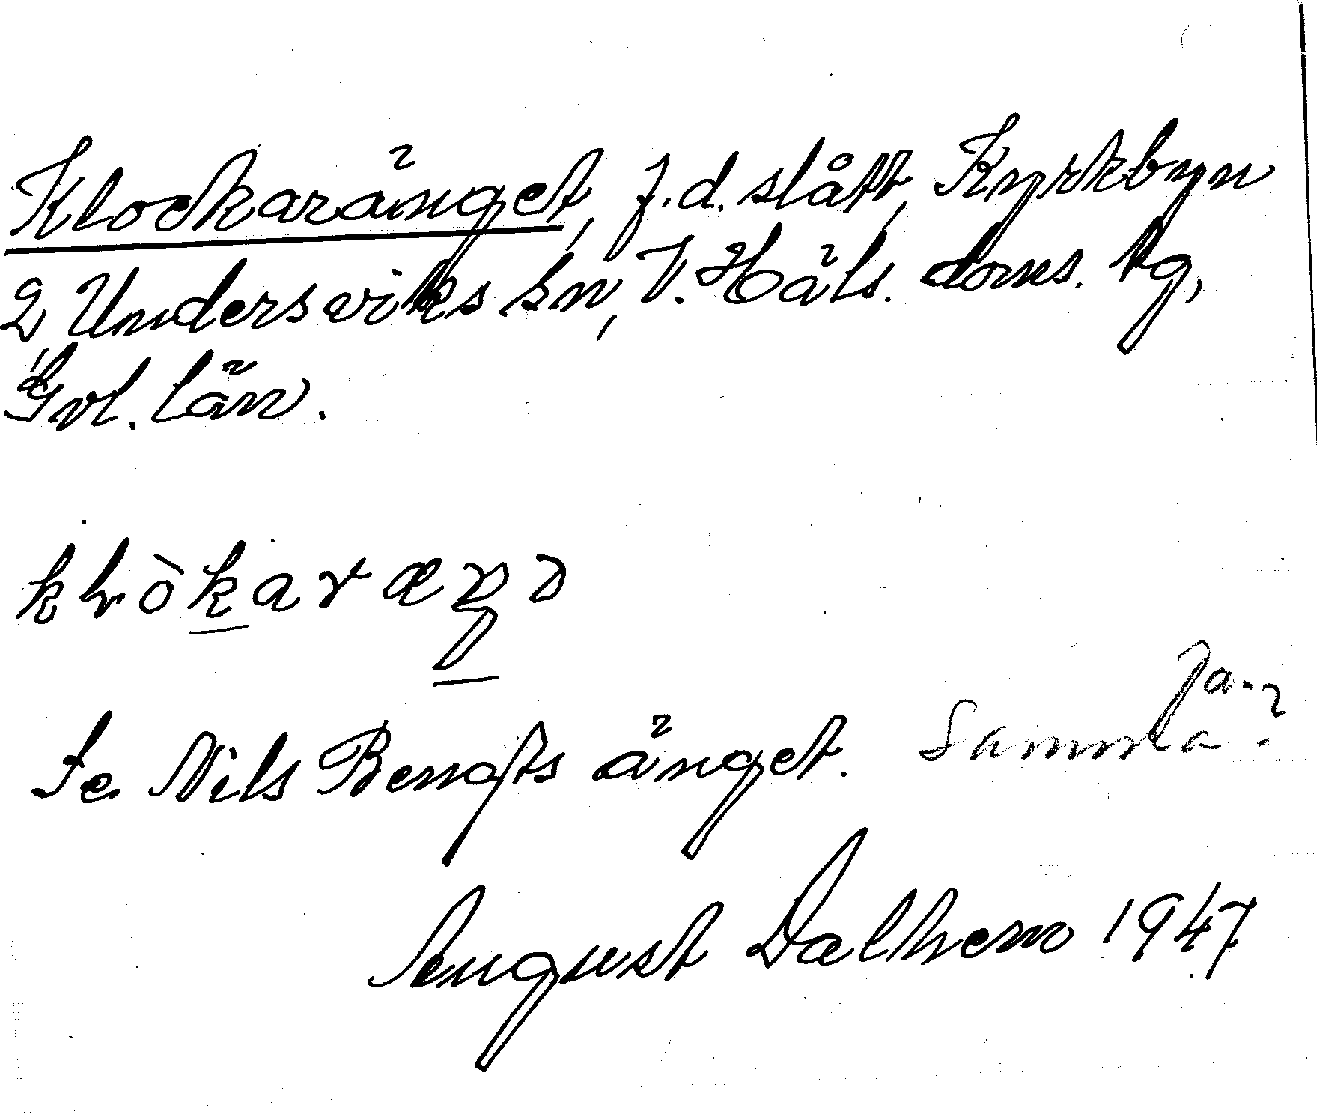 Klockaränget, f.d. slått, Kyrkbyn
2, Undersviks sn, V. Häls. doms. tg,
Gvl. län.
Ja.
Se Nils Bengts änget. Samma?
August Dalhem 1947